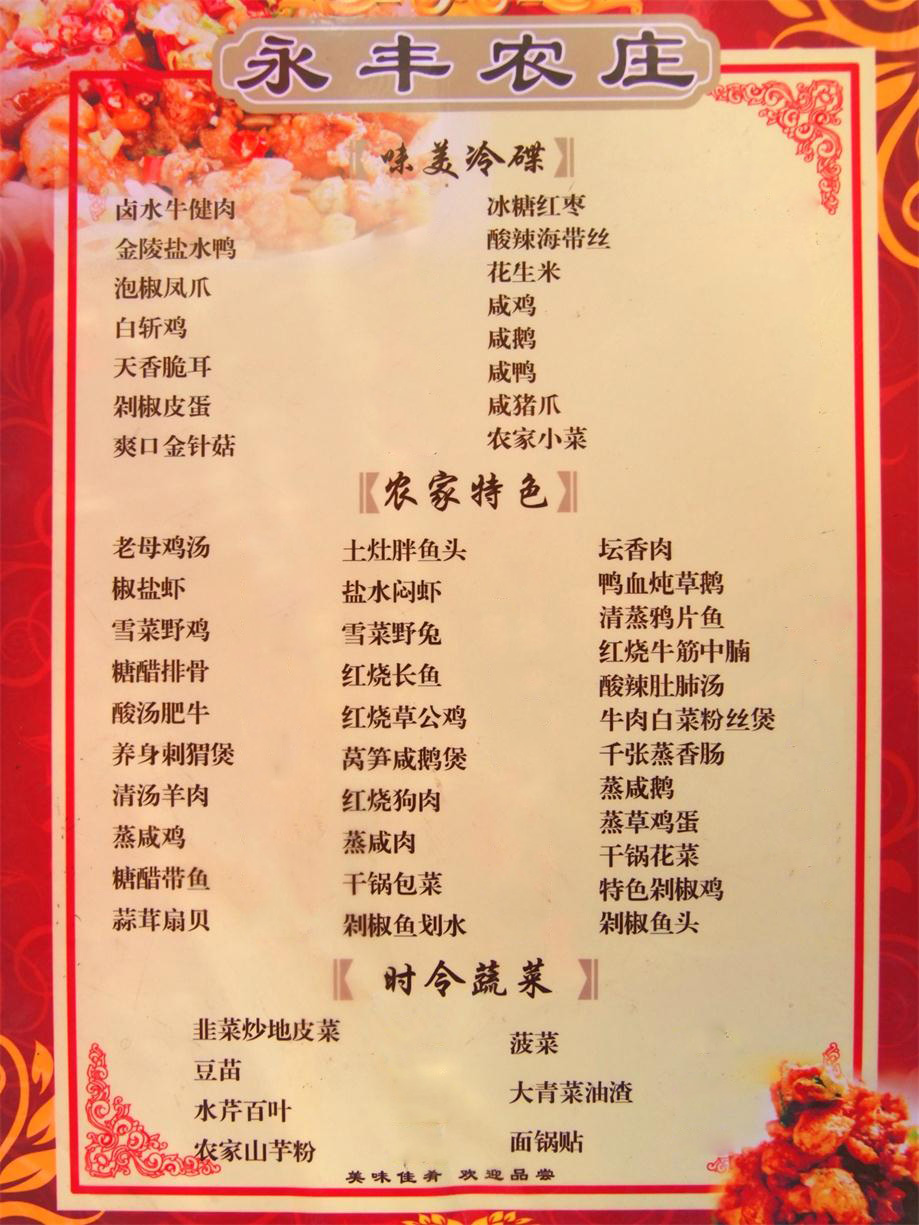 永丰农庄
味美冷碟
卤水牛健肉
金陵盐水鸭
泡椒凤爪
白斩鸡
天香脆耳
剁椒皮蛋
爽口金针菇
冰糖红枣
酸辣海带丝
花生米
咸鸡
咸鹅
咸鸭
咸猪爪
农家小菜
农家特色
老母鸡汤
椒盐虾
雪菜野鸡
糖醋排骨
酸汤肥牛
养身刺猬煲
清汤羊肉
蒸咸鸡
糖醋带鱼
蒜茸扇贝
土灶胖鱼头
盐水闷虾
雪菜野兔
红烧长鱼
红烧草公鸡
莴笋咸鹅煲
红烧狗肉
蒸咸肉
干锅包菜
剁椒鱼划水
坛香肉
鸭血炖草鹅
清蒸鸦片鱼
红烧牛筋中腩
酸辣肚肺汤
牛肉白菜粉丝煲
千张蒸香肠
蒸咸鹅
蒸草鸡蛋
干锅花菜
特色剁椒鸡
剁椒鱼头
时令蔬菜
韭菜炒地皮菜
豆苗
水芹百叶
农家山芋粉
菠菜
大青菜油渣
面锅贴
美味佳肴 欢迎品尝